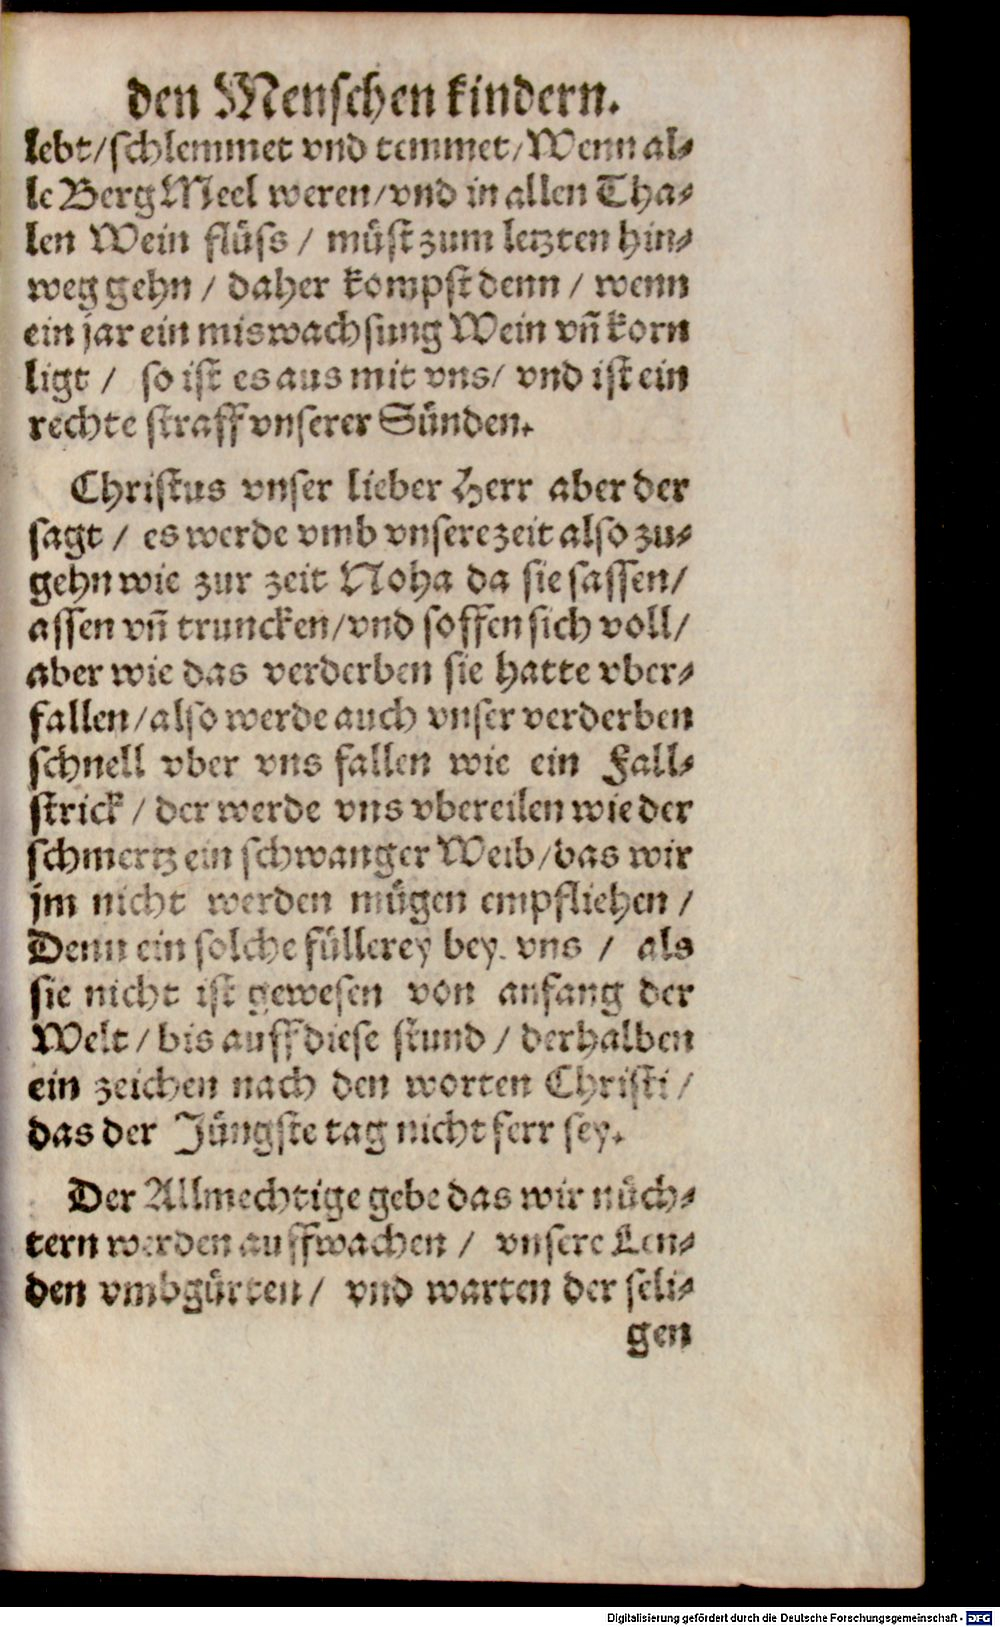 den Menschen kindern.
lebt/schlemmet vnd temmet/Wenn al-
le Berg Meel weren/vnd in allen Tha-
len Wein flüss / müst zum letzten hin-
weg gehn / daher kompst denn / wenn
ein jar ein miswachsung Wein vñ korn
ligt / so ist es aus mit vns/ vnd ist ein
rechte straff vnserer Sünden.
Christus vnser lieber Herr aber der
sagt / es werde vmb vnsere zeit also zu-
gehn wie zur zeit Noha da sie sassen/
assen vñ truncken/vnd soffen sich voll/
aber wie das verderben sie hatte vber-
fallen/also werde auch vnser verderben
schnell vber vns fallen wie ein Fall-
strick / der werde vns vbereilen wie der
schmertz ein schwanger Weib/das wir
jm nicht werden mügen empfliehen /
Denn ein solche füllerey bey vns / als
sie nicht ist gewesen von anfang der
Welt / bis auff diese stund / derhalben
ein zeichen nach den worten Christi /
das der Jüngste tag nicht ferr sey.
Der Allmechtige gebe das wir nüch-
tern werden auffwachen / vnsere Len-
den vmbgürten / vnd warten der seli-
gen
Digitalisierung gefördert durch die Deutsche Forschungsgemeinschaft - DFG